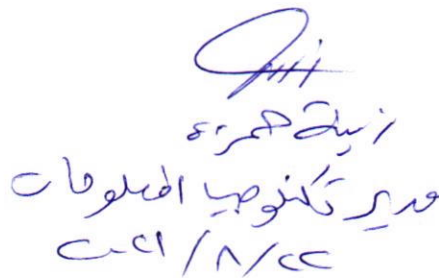 حمزة
مدير تكنولوجيا المعلومات
٢٠٢١/٨/٢٢